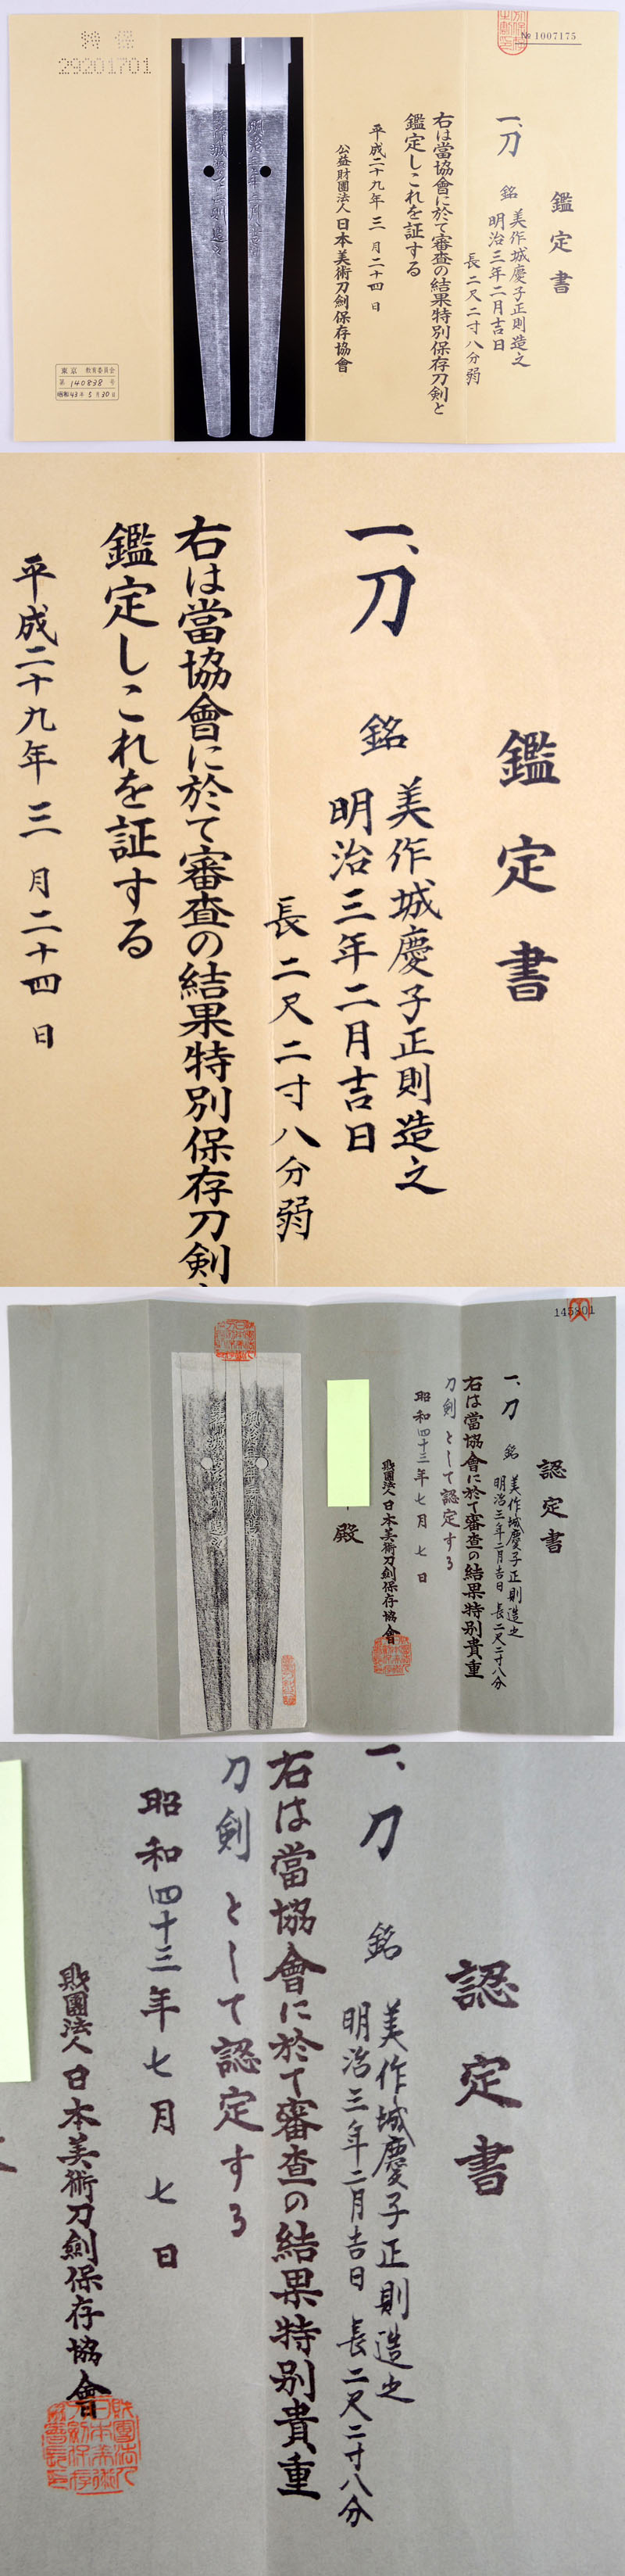 № 1007175
鑑定書
一、刀
銘 美作城慶子正則造之
明治三年二月吉日
長二尺二寸八分弱
右は當協會に於て審査の結果特別保存刀剣と
鑑定しこれを証する
平成二十九年三月二十四日
公益財團法人日本美術刀劍保存協會
特保
29201701
東京 教育委員会
第 140838 号
昭和43年5月30日
鑑定書
一、刀
銘 美作城慶子正則造之
明治三年二月吉日
長二尺二寸八分弱
右は當協會に於て審査の結果特別保存刀剣
鑑定しこれを証する
平成二十九年三月二十四日
認定書
一、刀
銘 美作城慶子正則造之
明治三年二月吉日 長二尺二寸八分
右は當協會に於て審査の結果特別貴重
刀剣として認定する
昭和四十三年七月七日
財團法人日本美術刀劍保存協會
殿
認定書
一、刀
銘 美作城慶子正則造之
明治三年二月吉日 長二尺二寸八分
右は當協會に於て審査の結果特別貴重
刀剣として認定する
昭和四十三年七月七日
財團法人日本美術刀劍保存協會